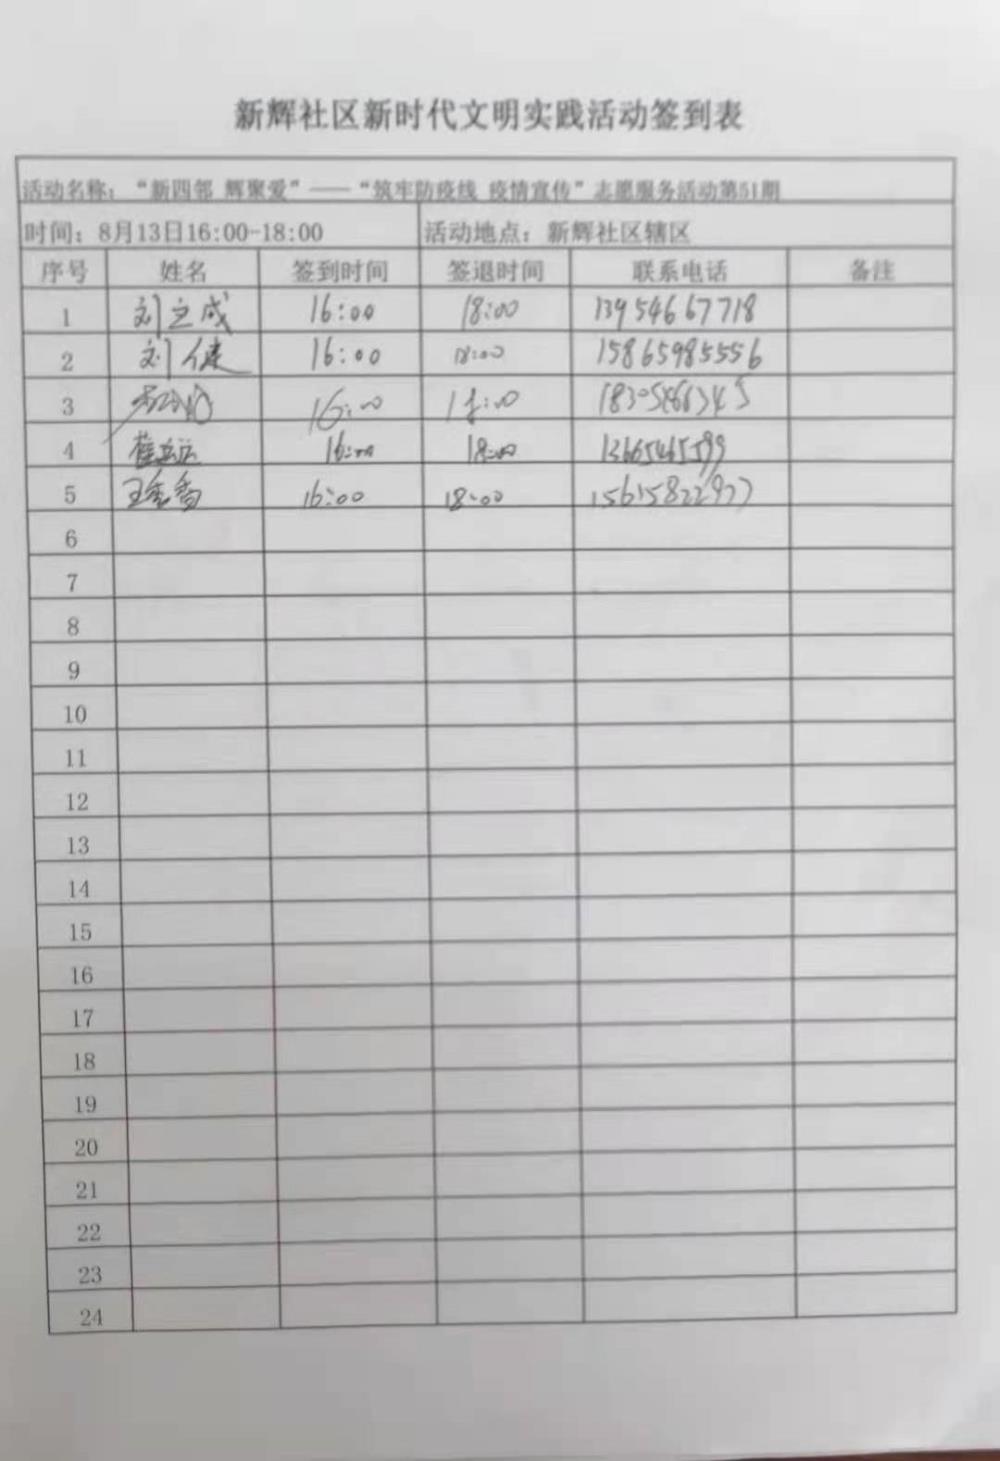 新辉社区新时代文明实践活动签到表
活动名称：“新四邻 辉聚爱”——“筑牢防疫线 疫情宣传”志愿服务活动第51期
时间：8月13日16:00-18:00 活动地点：新辉社区辖区
序号 姓名 签到时间 签退时间 联系电话 备注
1 刘立成 16:00 18:00 13954667718
2 刘健 16:00 18:00 15865985556
3 16:00 18:00
4 16:00 18:00 13665465599
5 王秀香 16:00 18:00 15615822977
6
7
8
9
10
11
12
13
14
15
16
17
18
19
20
21
22
23
24